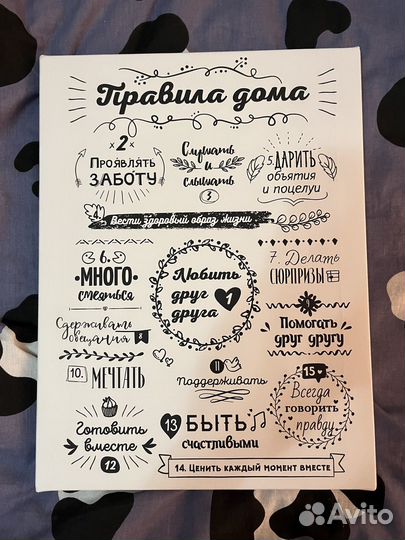 Правила дома
2
Проявлять
ЗАБОТУ
Слушать
и
слышать
3
5. ДАРИТЬ
объятия
и поцелуи
4
Вести здоровый образ жизни
6.
МНОГО
смеяться
Любить
друг
друга
1
7. Делать
СЮРПРИЗЫ
Сдерживать
обещания 8
Помогать
друг другу
10. МЕЧТАТЬ
11
Поддерживать
15
Всегда
говорить
правду
Готовить
вместе
12
13 БЫТЬ
счастливыми
14. ЦЕНИТЬ КАЖДЫЙ МОМЕНТ ВМЕСТЕ
Avito